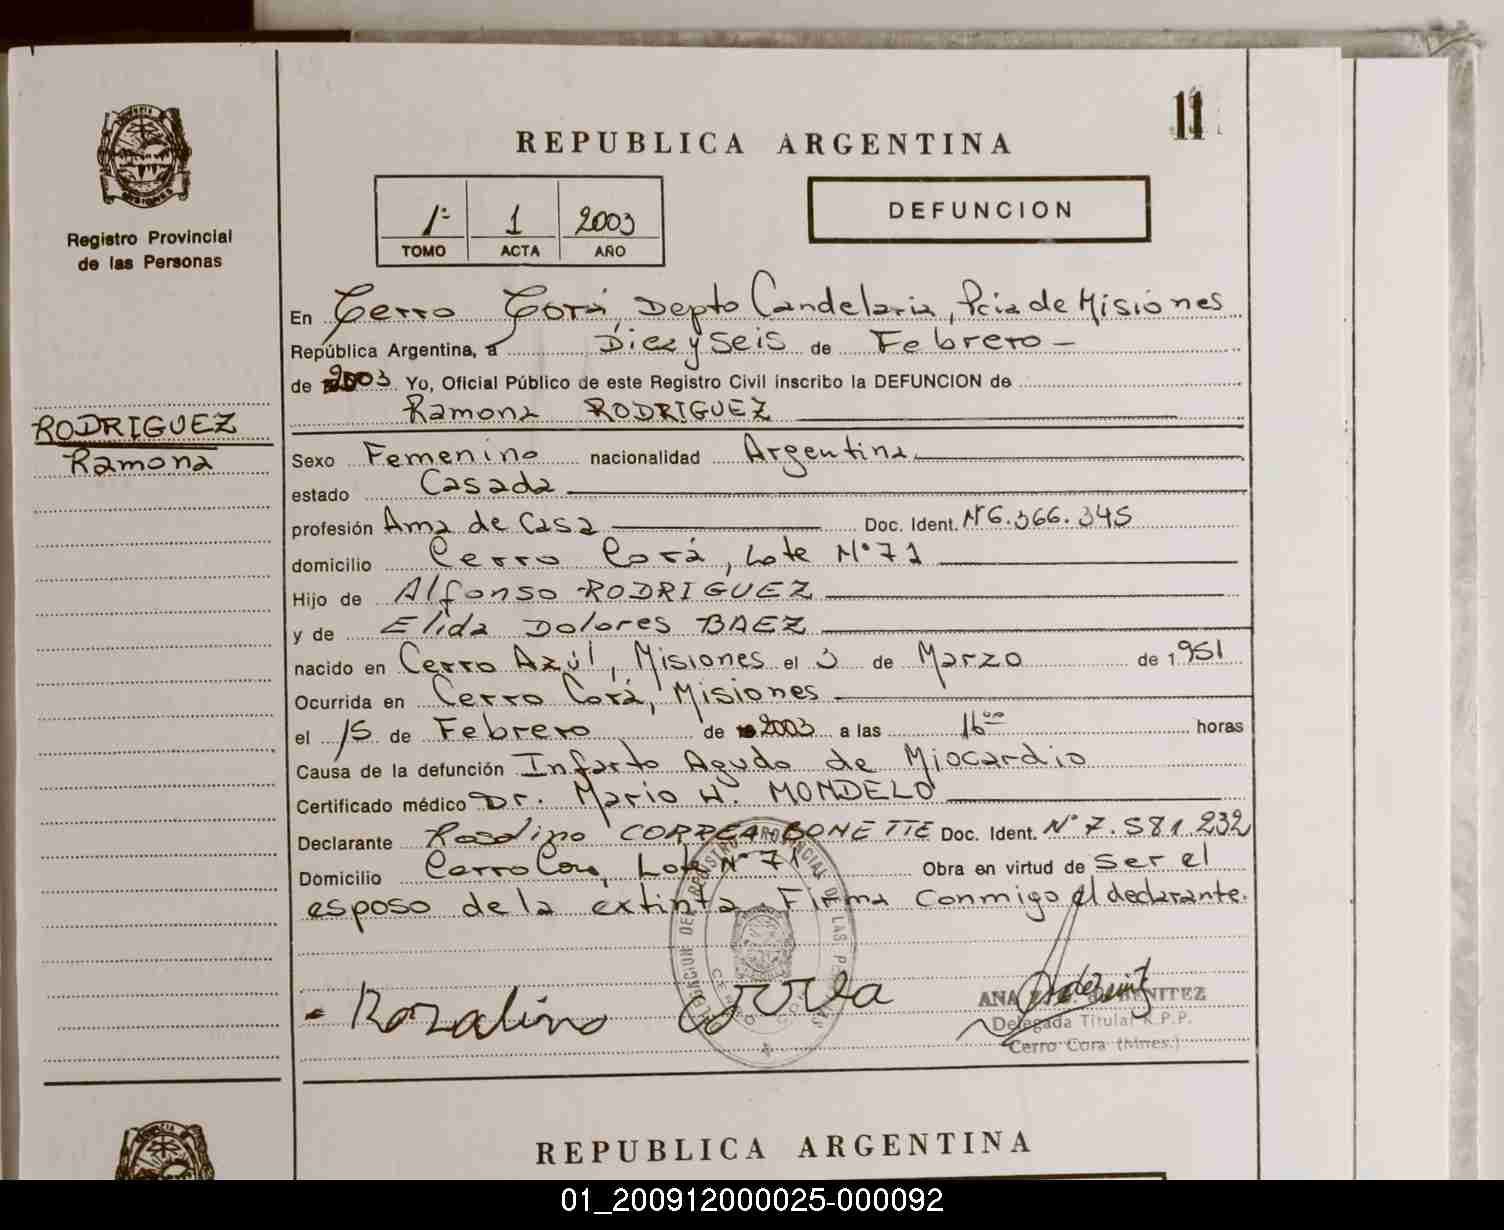 11
REPUBLICA ARGENTINA
1º 1 2003
TOMO ACTA AÑO
DEFUNCION
Registro Provincial
de las Personas
RODRIGUEZ
Ramona
En Cerro Corá, Depto Candelaria, Pcia de Misiones
República Argentina, a Diez y Seis de Febrero
de 2003 Yo, Oficial Público de este Registro Civil inscribo la DEFUNCION de
Ramona RODRIGUEZ
Sexo Femenino nacionalidad Argentina
estado Casada
profesión Ama de Casa Doc. Ident. Nº 6.366.345
domicilio Cerro Corá, Lote Nº 71
Hijo de Alfonso RODRIGUEZ
y de Elida Dolores BAEZ
nacido en Cerro Azúl, Misiones el 3 de Marzo de 1951
Ocurrida en Cerro Corá, Misiones
el 15 de Febrero de 2003 a las 16 00 horas
Causa de la defunción Infarto Agudo de Miocardio
Certificado médico Dr. Mario H. MONDELO
Declarante Rosalino CORREA BONETTE Doc. Ident. Nº 7.581.232
Domicilio Cerro Corá, Lote Nº 71 Obra en virtud de ser el
esposo de la extinta. Firma conmigo el declarante.
Rozalino
ANA BENITEZ
Delegada Titular R.P.P.
Cerro Cora (Mnes.)
REPUBLICA ARGENTINA
01_200912000025-000092